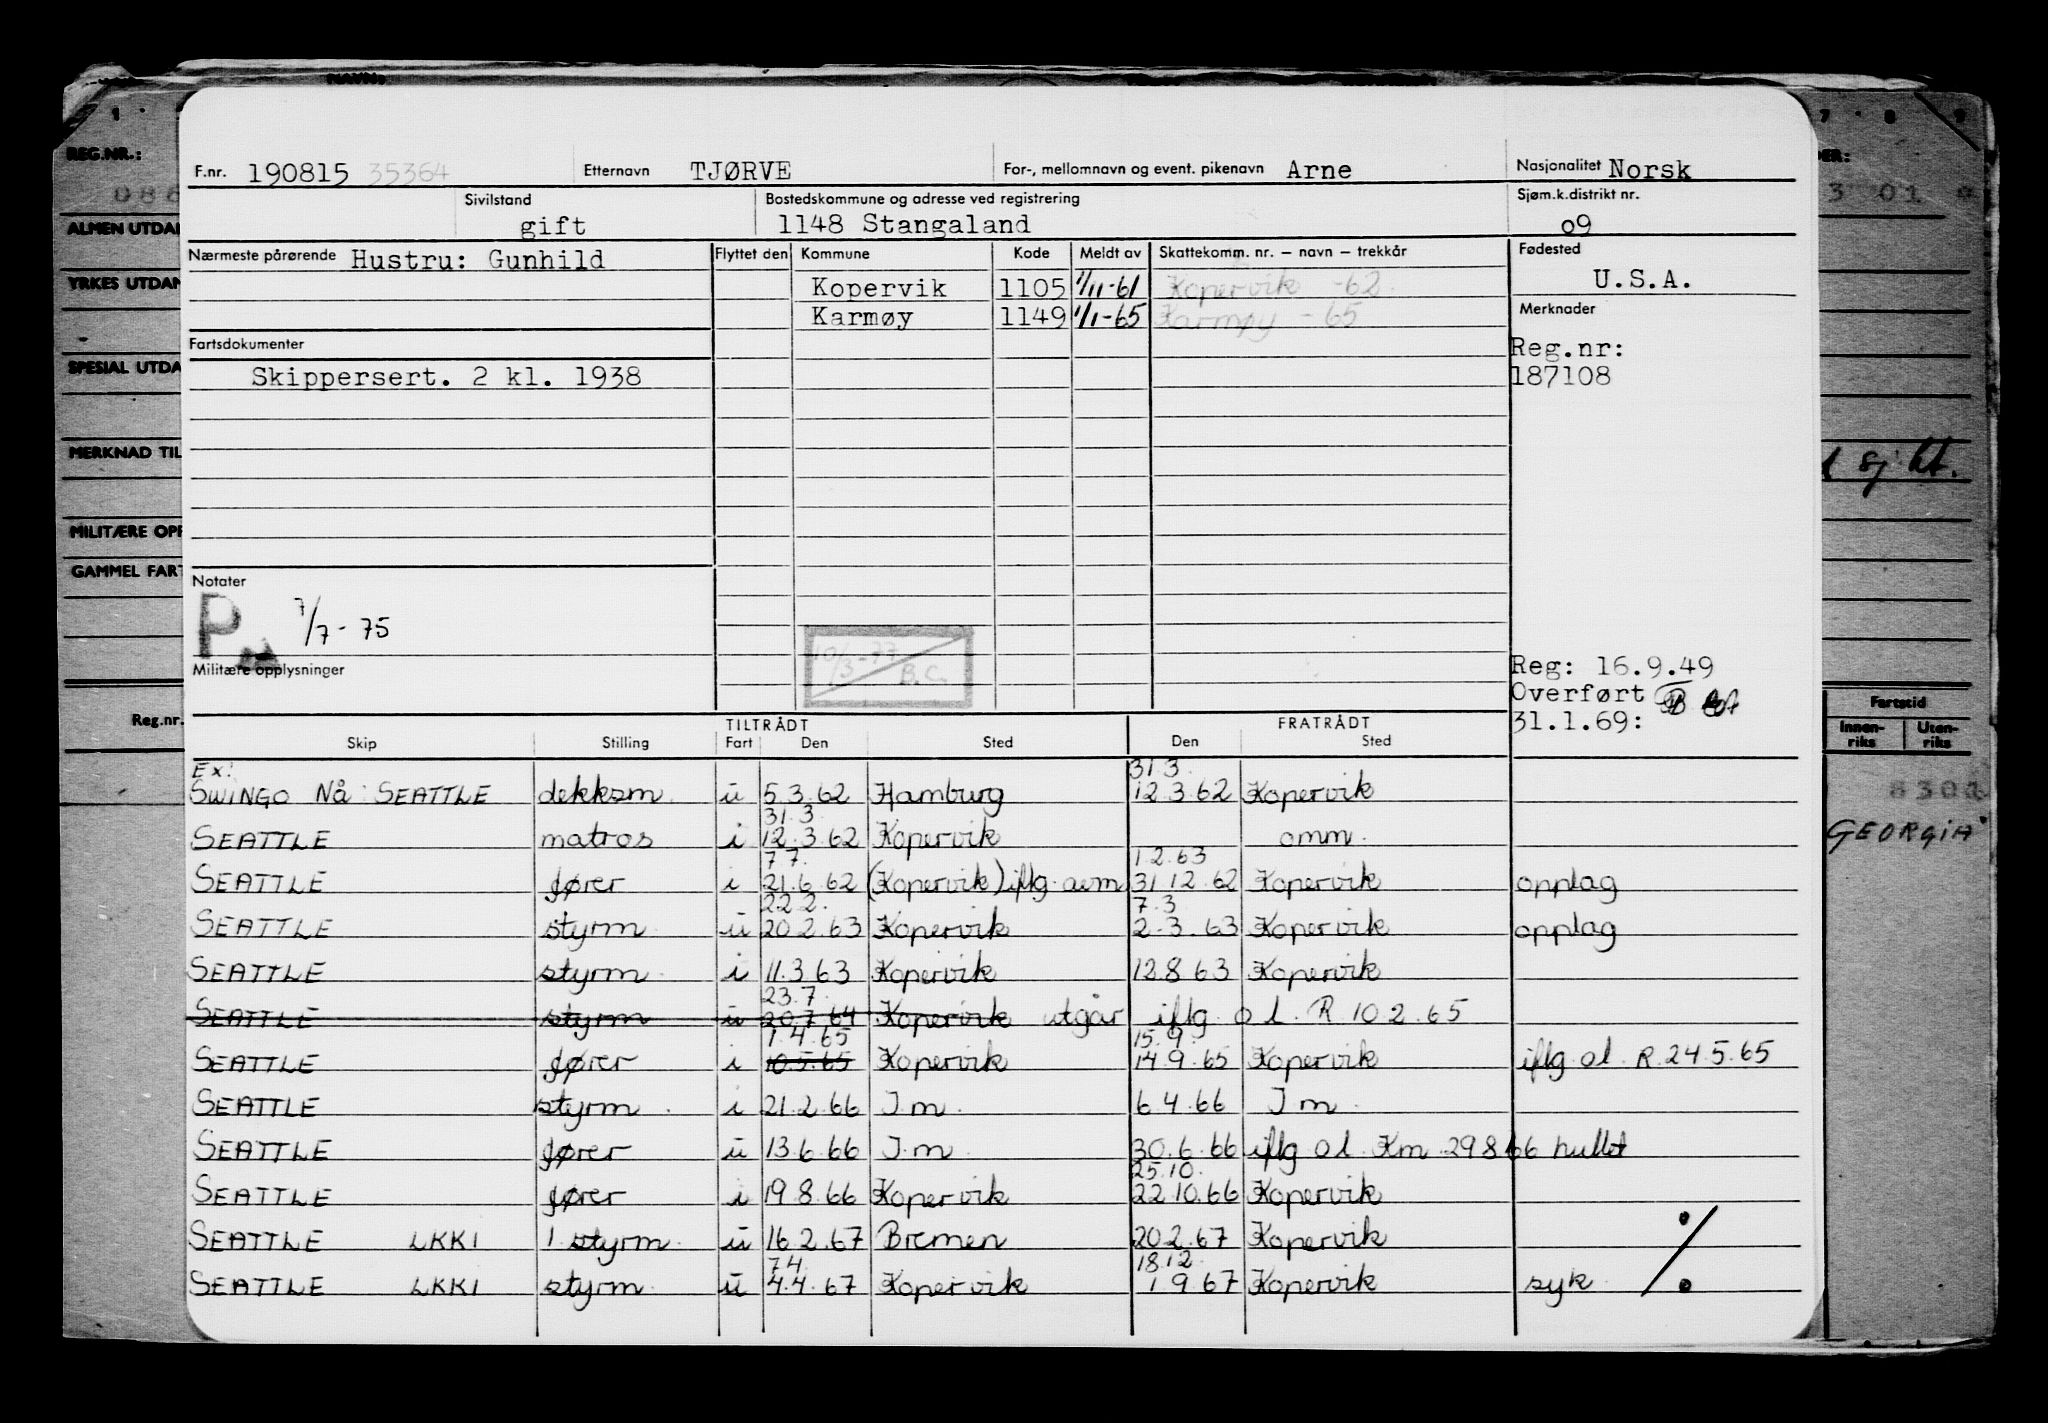 NAVN:
1
7 . 8 9
REG.NR.:
086
3 01
ALMEN UTDAN
YRKES UTDAN
SPESIAL UTDA
MERKNAD TIL
MILITÆRE OPP
GAMMEL FART
Reg.nr.
sj.
Fartstid
Innen-riks Uten-riks
8302
GEORGIA
F.nr. 190815 35364 Etternavn TJØRVE For-, mellomnavn og event. pikenavn Arne Nasjonalitet Norsk
Sivilstand gift Bostedskommune og adresse ved registrering 1148 Stangaland Sjøm.k.distrikt nr. 09
Nærmeste pårørende Hustru: Gunhild Flyttet den Kommune Kode Meldt av Skattekomm. nr. – navn – trekkår Fødested U.S.A.
Kopervik 1105 1/11-61 Kopervik -62
Karmøy 1149 1/1-65 Karmøy -65
Merknader
Fartsdokumenter
Reg.nr:
Skippersert. 2 kl. 1938
187108
Notater
P. 7/7-75
10/3-77 B.C.
Militære opplysninger
Reg: 16.9.49
Overført
31.1.69:
TILTRÅDT FRATRÅDT
Skip Stilling Fart Den Sted Den Sted
Ex: 31.3.
SWINGO Nå SEATTLE dekksm. u 5.3.62 Hamburg 12.3.62 Kopervik
31.3.
SEATTLE matros i 12.3.62 Kopervik omm.
7.7. 1.2.63
SEATTLE fører i 21.6.62 (Kopervik) iflg. avm 31.12.62 Kopervik opplag
22.2. 7.3
SEATTLE styrm u 20.2.63 Kopervik 2.3.63 Kopervik opplag
SEATTLE styrm. i 11.3.63 Kopervik 12.8.63 Kopervik
23.7.
SEATTLE styrm u 20.7.64 Kopervik utgår iflg. o.l. R 10.2.65
1.4.65 15.9.
SEATTLE fører i 10.5.65 Kopervik 14.9.65 Kopervik iflg. o.l. R.24.5.65
SEATTLE styrm. i 21.2.66 I.m. 6.4.66 I.m.
SEATTLE fører u 13.6.66 I.m. 30.6.66 iflg o.l. Km. 29.8.66 hullet
25.10.
SEATTLE fører i 19.8.66 Kopervik 22.10.66 Kopervik
SEATTLE LKKI 1 styrm. u 16.2.67 Bremen 20.2.67 Kopervik
7.4. 18.12
SEATTLE LKKI styrm. u 4.4.67 Kopervik 1.9.67 Kopervik syk ./.